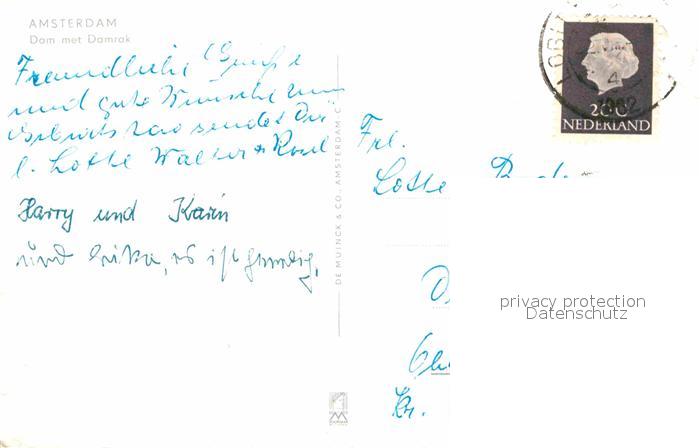 AMSTERDAM
Dam met Damrak
Freundliche Grüße
und gute Wünsche zum
Geburtstag sendet Dir
l. Lotte Walter + Rosel
Harry und Karin
und Erika, es ist
DE MUINCK & CO. - AMSTERDAM-C
Frl.
Lotte
Kr.
1962
20 C
NEDERLAND
privacy protection
Datenschutz